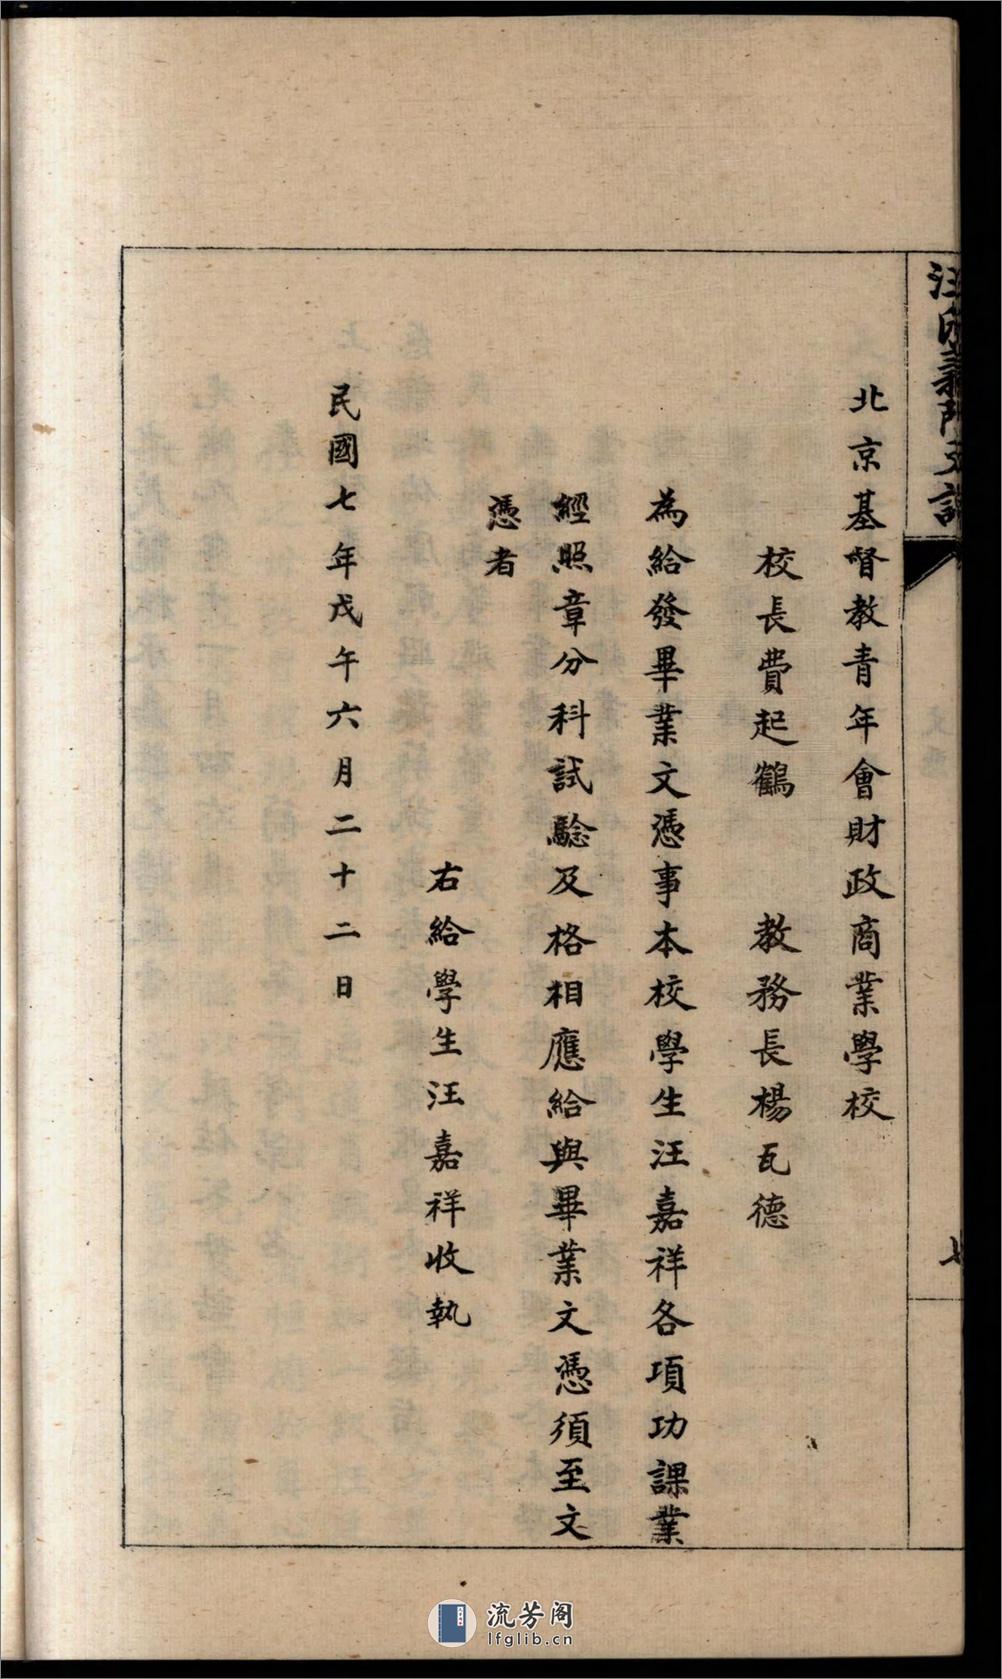 北京基督教青年會財政商業學校
校長費起鶴　教務長楊瓦德
為給發畢業文憑事本校學生汪嘉祥各項功課業
經照章分科試驗及格相應給與畢業文憑須至文
憑者
右給學生汪嘉祥收執
民國七年戊午六月二十二日
流芳阁
lfglib.cn